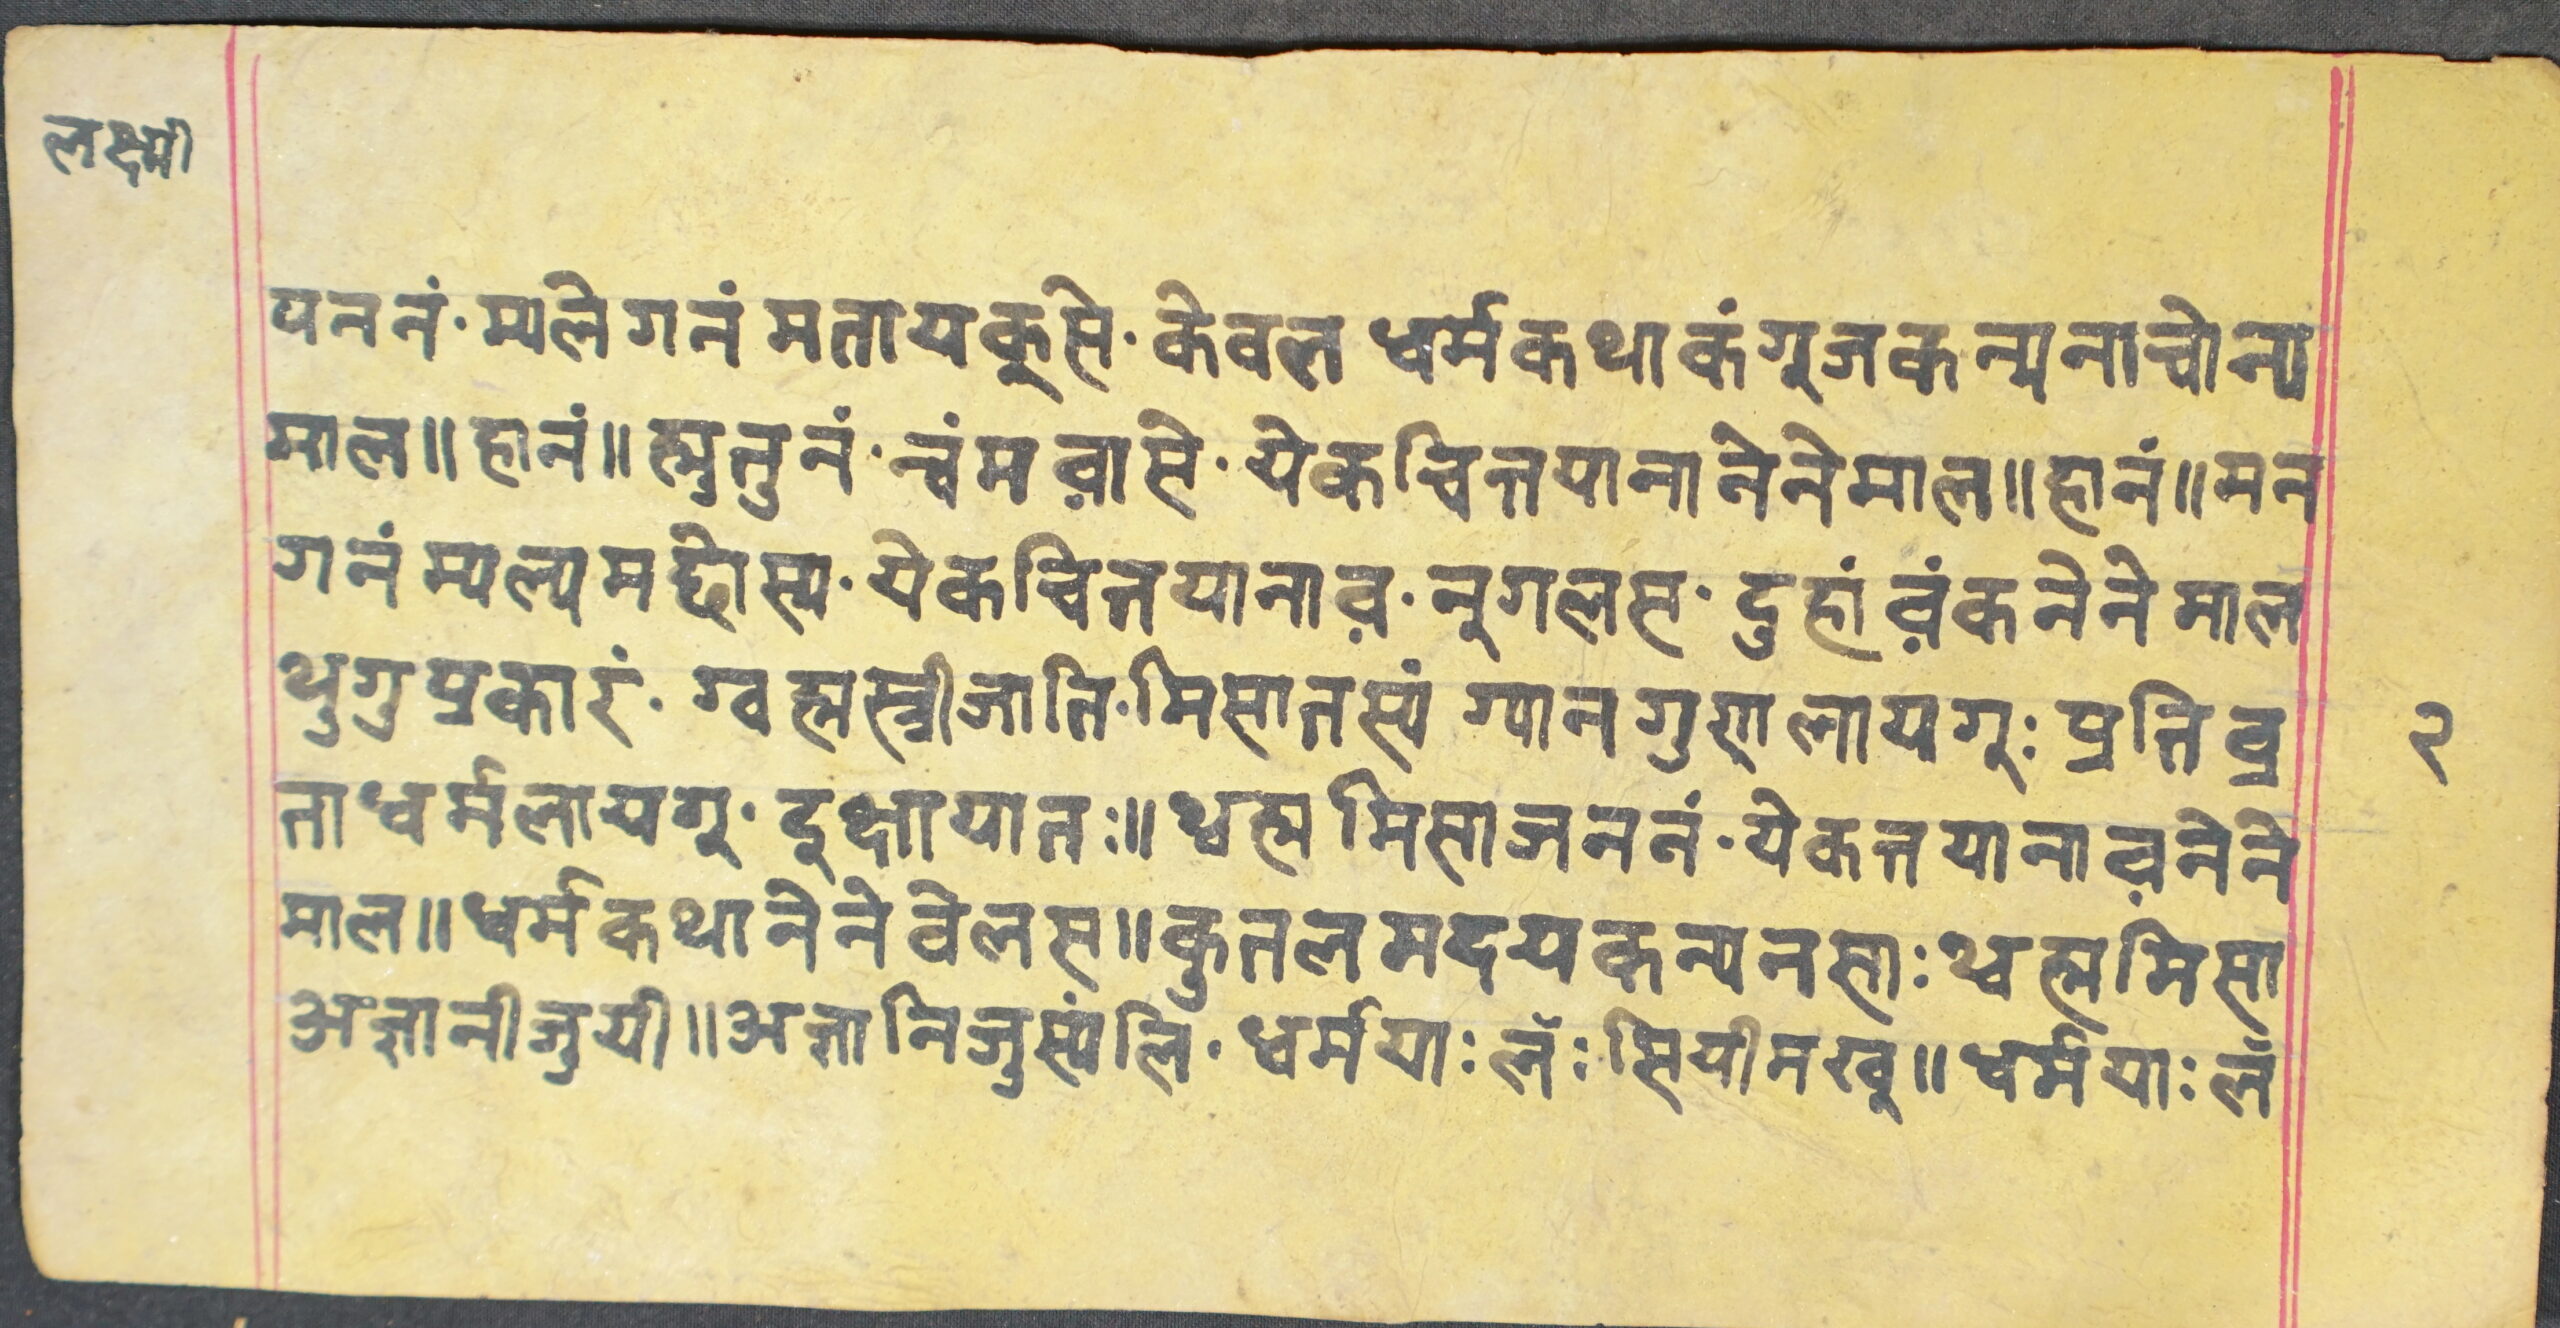 लक्ष्मी
पननं॰ म्यलेगनं मतायकूसे॰ केवल धर्मकथा कंगूजक न्यना च्वोन्य
माल॥ हानं॥ ह्मुतुनं॰ न्वंम वासे॰ येकचित्तयाना नेनेमाल॥ हानं॥ मन
गनं म्यल्य मछोस्य॰ येकचित्तयाना व़॰ नूगलस॰ दुहां व़ंक नेनेमाल
थुगु प्रकारं॰ ग्वह्म स्त्रीजाति॰ मिसातस्यं ग्यानगुण लायगू: प्रतिव्र
ता धर्मलायगू॰ दूक्षा यात:॥ थ्वह्म मिसाजननं॰ येकत्तयाना व़ नेने
माल॥ धर्मकथा नेने वेलस॥ कुतल मदयक न्यनसा: थ्वह्म मिसा
अज्ञानी जुयी॥ अज्ञानि जुस्यंलि॰ धर्मया: लँ: सियी मखू॥ धर्मया: लँ
२